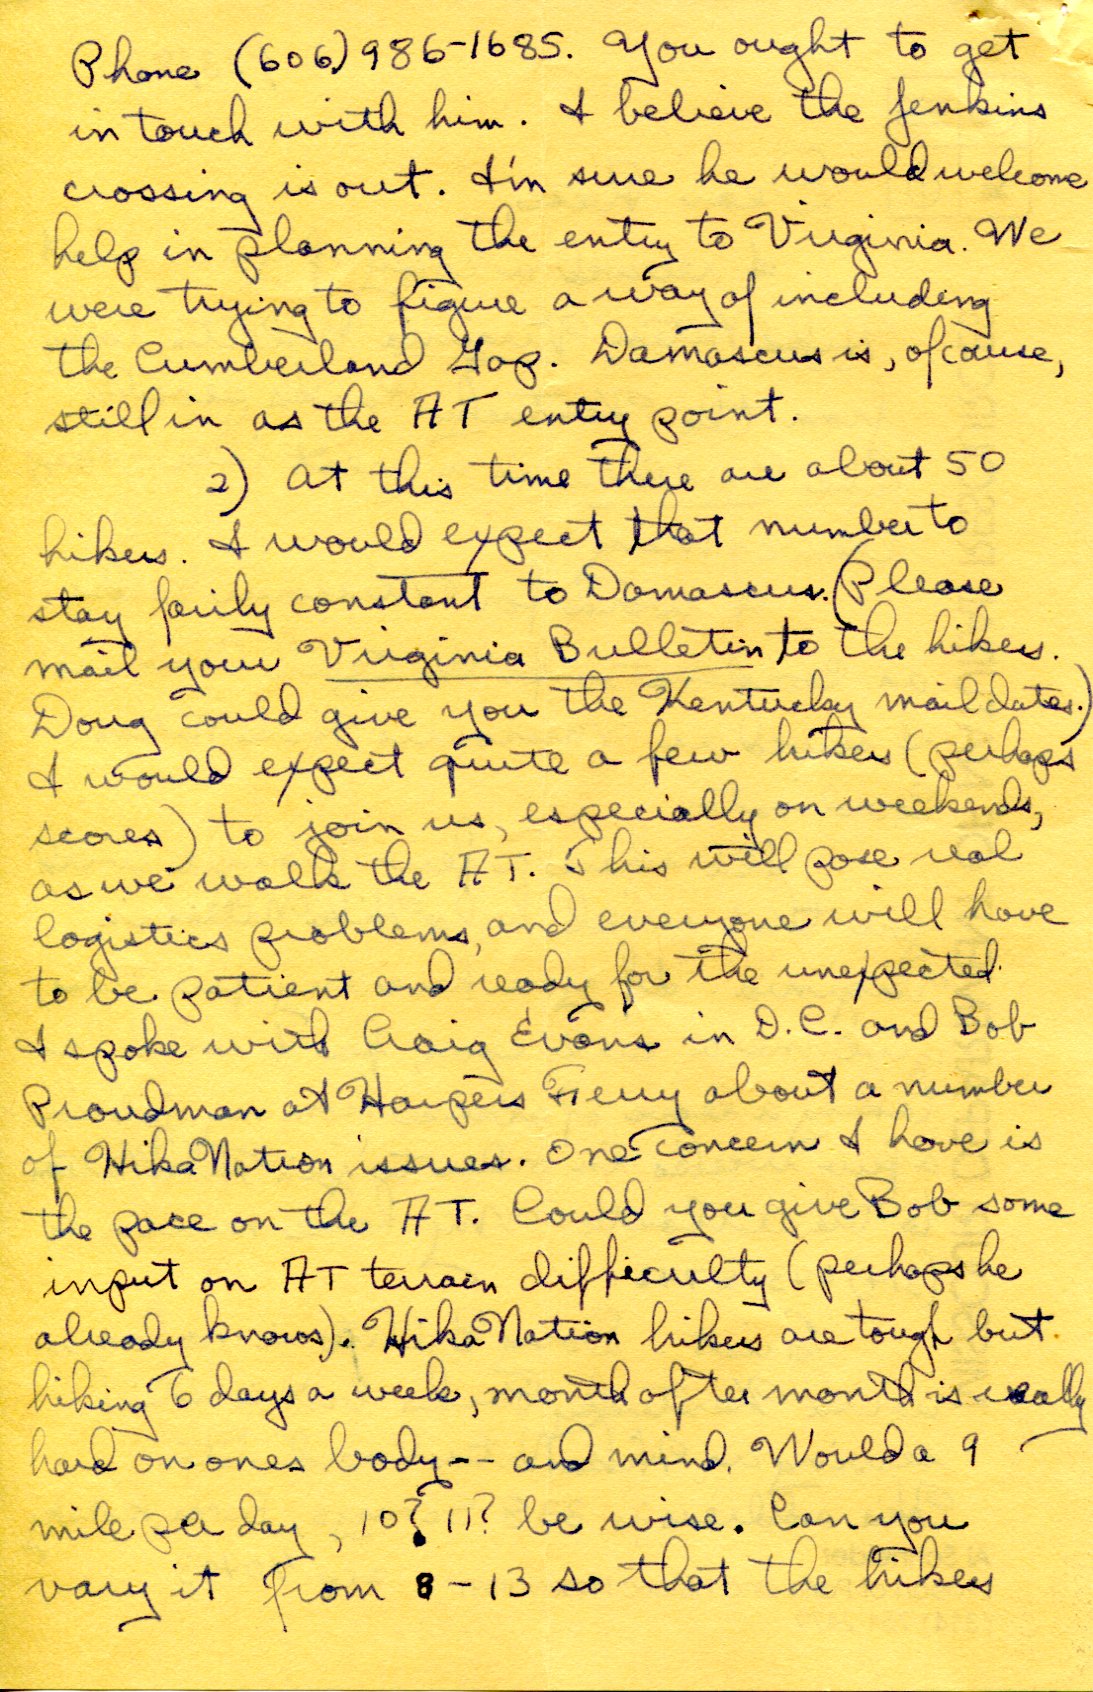 Phone (606) 986-1685. You ought to get
in touch with him. I believe the Jenkins
crossing is out. I'm sure he would welcome
help in planning the entry to Virginia. We
were trying to figure a way of including
the Cumberland Gap. Damascus is, of cause,
still in as the AT entry point.
2) At this time there are about 50
hikers. I would expect that number to
stay fairly constant to Damascus. (Please
mail your Virginia Bulletin to the hikers.
Doug could give you the Kentucky mail dates.)
I would expect quite a few hikers (perhaps
scores) to join us, especially on weekends,
as we walk the AT. This will pose real
logistics problems, and everyone will have
to be patient and ready for the unexpected.
I spoke with Craig Evans in D.C. and Bob
Proudman at Harpers Ferry about a number
of HikaNation issues. One concern I have is
the pace on the AT. Could you give Bob some
input on AT terrain difficulty (perhaps he
already knows). HikaNation hikers are tough but
hiking 6 days a week, month after month is really
hard on ones body -- and mind. Would a 9
mile per day, 10? 11? be wise. Can you
vary it from 8-13 so that the hikers